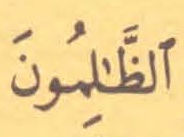 ٱلظَّـٰلِمُونَ